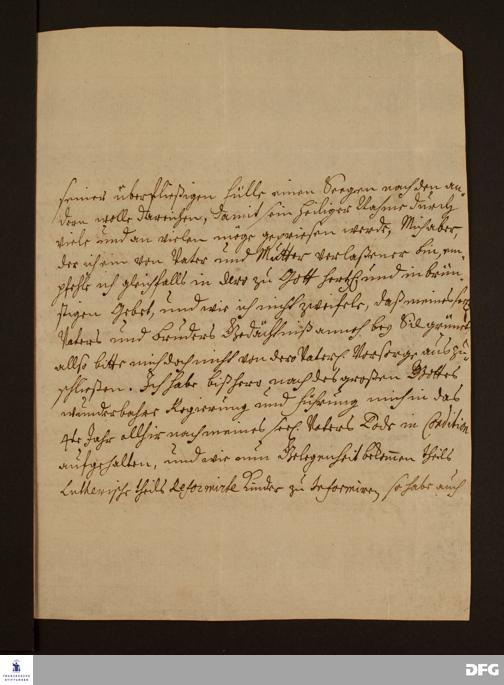 seiner überfließigen Fülle einen Seegen nach den an-
dern wolle darreichen, damit sein heiliger Nahme durch
viele und an vielen möge gepriesen werde, Mich aber,
der ich ein von Vater und Mutter verlaßener bin, em-
pfehle ich gleichfalls in dero zu Gott hertzl und inbrün-
stigen Gebet, und wie ich nicht zweifele, daß meines seel
Vaters und Bruders Gedächtniß annoch bey Sie grünet
allso bitte mich doch nicht von dero Väterl Vorsorge auszu-
schließen. Ich habe bißhero nach des großen Gottes
wunderbaher Regierung und Führung mich in das
4te Jahr allhir nach meines seel. Vaters Tode in Condition
aufgehalten, und wie nun Gelegenheit bekommen theils
Lutherische theils Reformirte Kinder zu Informiren, so habe auch
FRANCKESCHE STIFTUNGEN
DFG